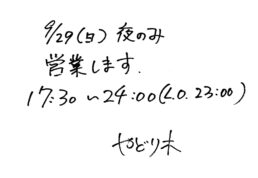 9/29(日) 夜のみ
営業します.
17:30〜24:00(L.O. 23:00)
やどり木